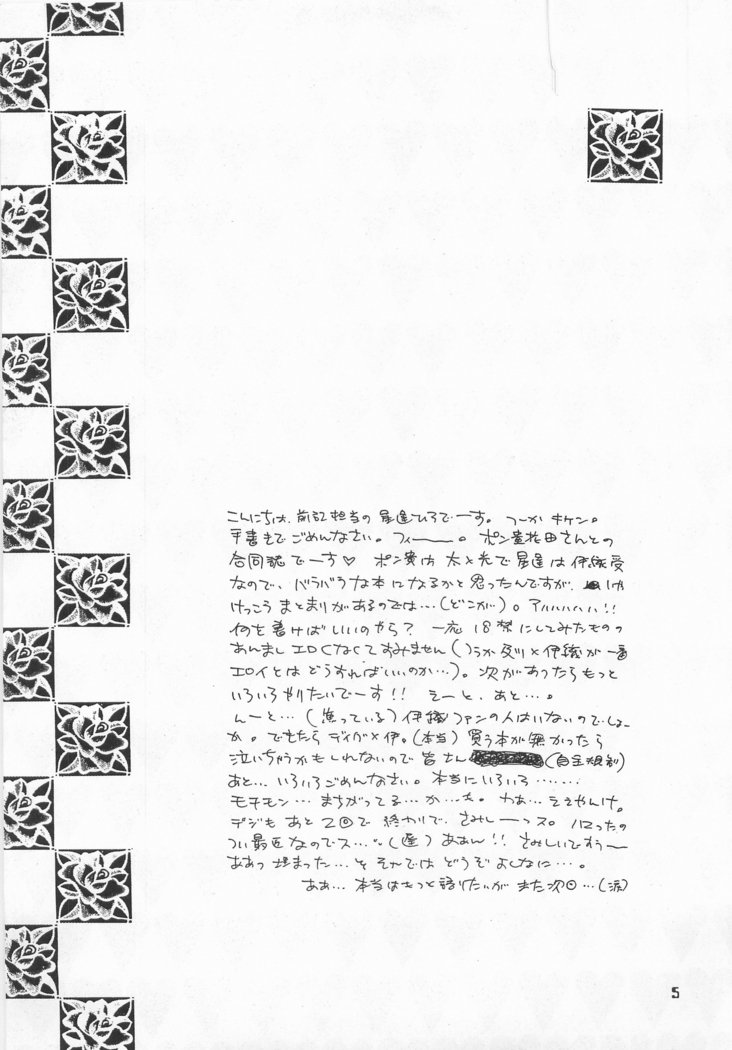 こんにちは、前記担当の星逢ひろでーす。つーか キケン。
手書きでごめんなさい。フィーー。ポン貴花田さんとの
合同誌でーす♡ ポン貴は 太と光で星逢は伊織受
なので、バラバラな本になるかと思ったんですが、
けっこう まとまりがあるのでは…(どこが)。アハハハハハ!!
何を書けばいいのかしら? 一応 18禁にしてみたものの
あんまし エロくなくてすみません(つうか 及川×伊織が一番
エロイとは どうすればいいのか…)。次があったらもっと
いろいろやりたいでーす!! えーと、あと…。
んーと…(焦っている) 伊織ファンの人はいないのでしょー
か。できたら デイが×伊。(本当) 買う本が無かったら
泣いちゃうかもしれないので 皆さん (自主規制)
あと… いろいろごめんなさい。本当にいろいろ……
モチモン… まちがってる…か…も。わぁ… ええやんけ。
デジも あと 2回で 終わりで、さみしーーっス。ハマったの
つい最近なのでス…(遅) ああん!! さみしいですぅー
ああっ 埋まった…っ それでは どうぞ よしなに…。
ああ… 本当はもっと語りたいが また次回…(涙)
5